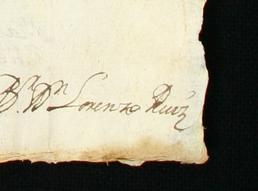 Br Dn Lorenzo Ruiz